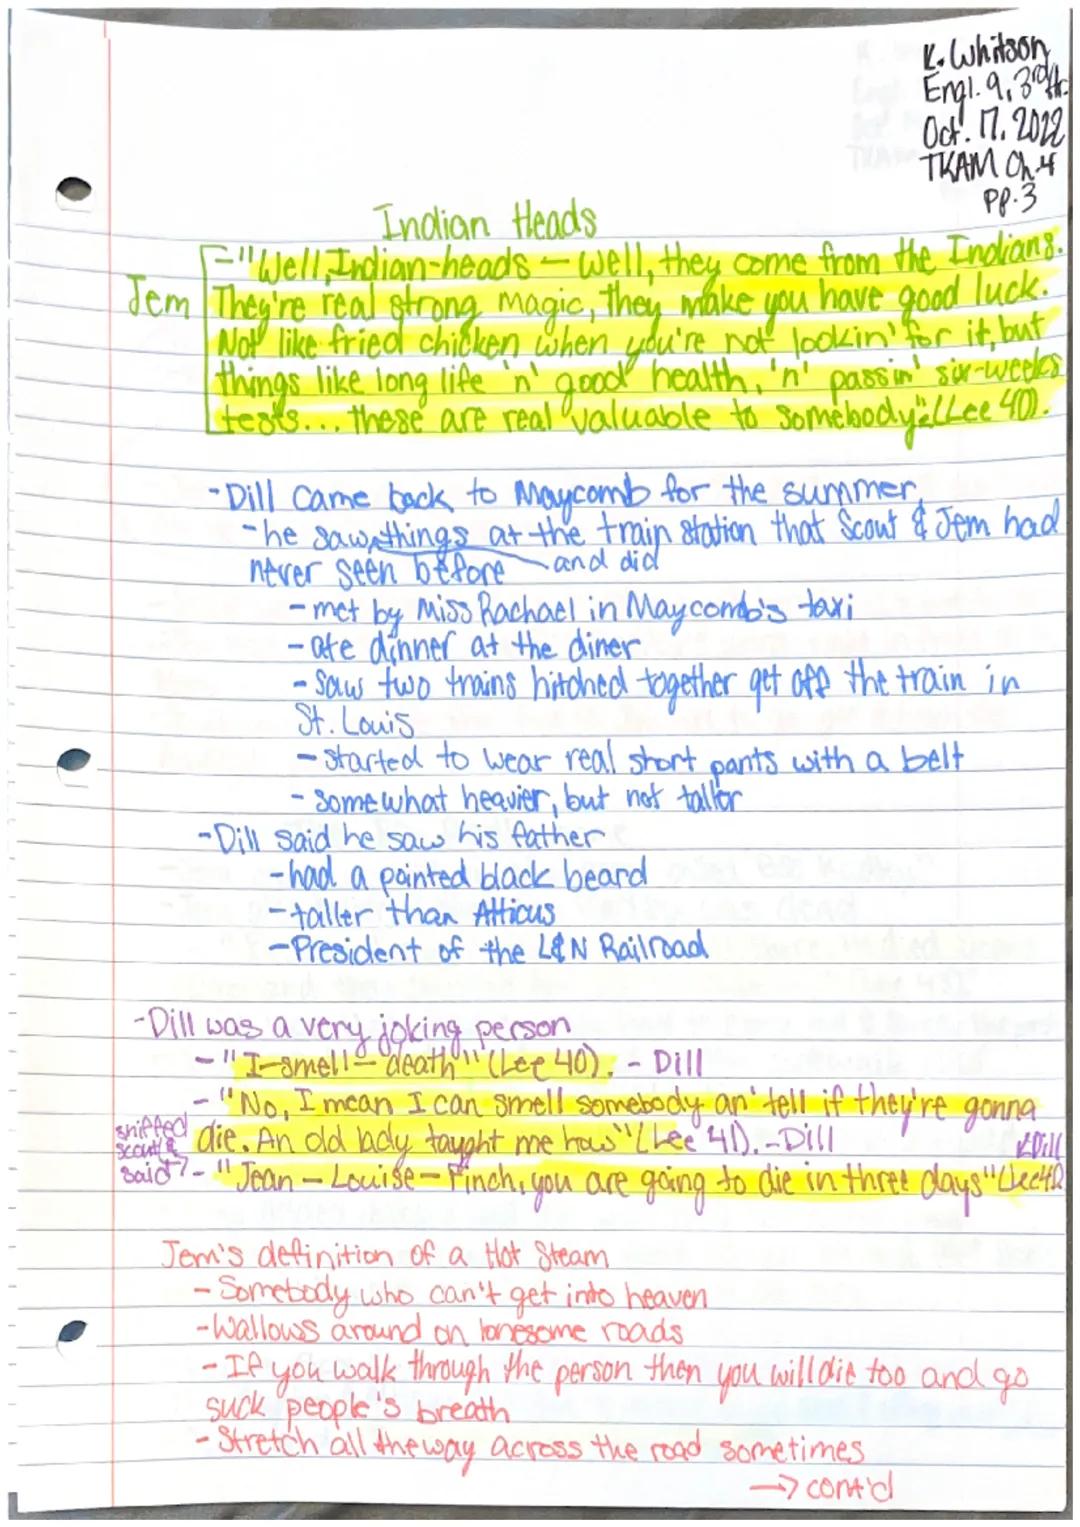 K. Whitson
Engl. 9, 3rd Hr.
Oct. 17, 2022
TKAM Ch. 4
pp. 3
Indian Heads
Jem
-"Well, Indian-heads — well, they come from the Indians.
They're real strong magic, they make you have good luck.
Not like fried chicken when you're not lookin' for it, but
things like long life 'n' good health, 'n' passin' six-weeks
tests... these are real valuable to somebody" (Lee 40).
-Dill came back to Maycomb for the summer,
-he saw things at the train station that Scout & Jem had
never seen before and did
-met by Miss Rachael in Maycomb's taxi
-ate dinner at the diner
-saw two trains hitched together get off the train in
St. Louis
-started to wear real short pants with a belt
-somewhat heavier, but not taller
-Dill said he saw his father
-had a pointed black beard
-taller than Atticus
-President of the L&N Railroad
-Dill was a very joking person
-"I-smell-death" (Lee 40). - Dill
-"No, I mean I can smell somebody an' tell if they're gonna
die. An old lady taught me how" (Lee 41). -Dill
sniffed
scout &
said
-"Jean-Louise-Finch, you are going to die in three days" (Lee 41)
Dill
Jem's definition of a Hot Steam
-Somebody who can't get into heaven
-Wallows around on lonesome roads
-If you walk through the person then you will die too and go
suck people's breath
-Stretch all the way across the road sometimes
→ cont'd